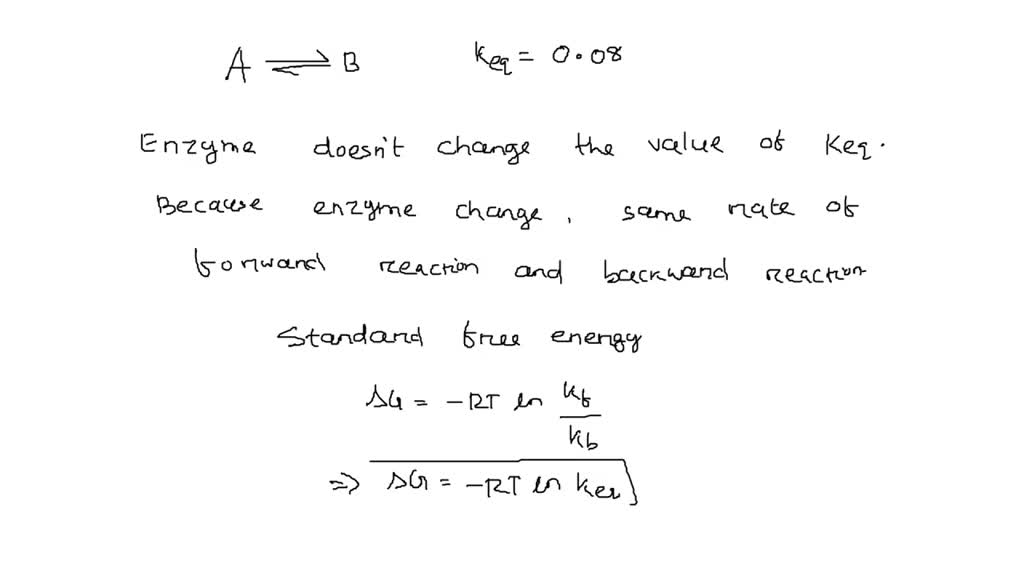 A ⇌ B    Keq = 0.08
Enzyme doesn't change the value of Keq.
Because enzyme change, same rate of
forward reaction and backward reaction
Standard free energy
ΔG = -RT ln kf/kb
=> ΔG = -RT ln Keq